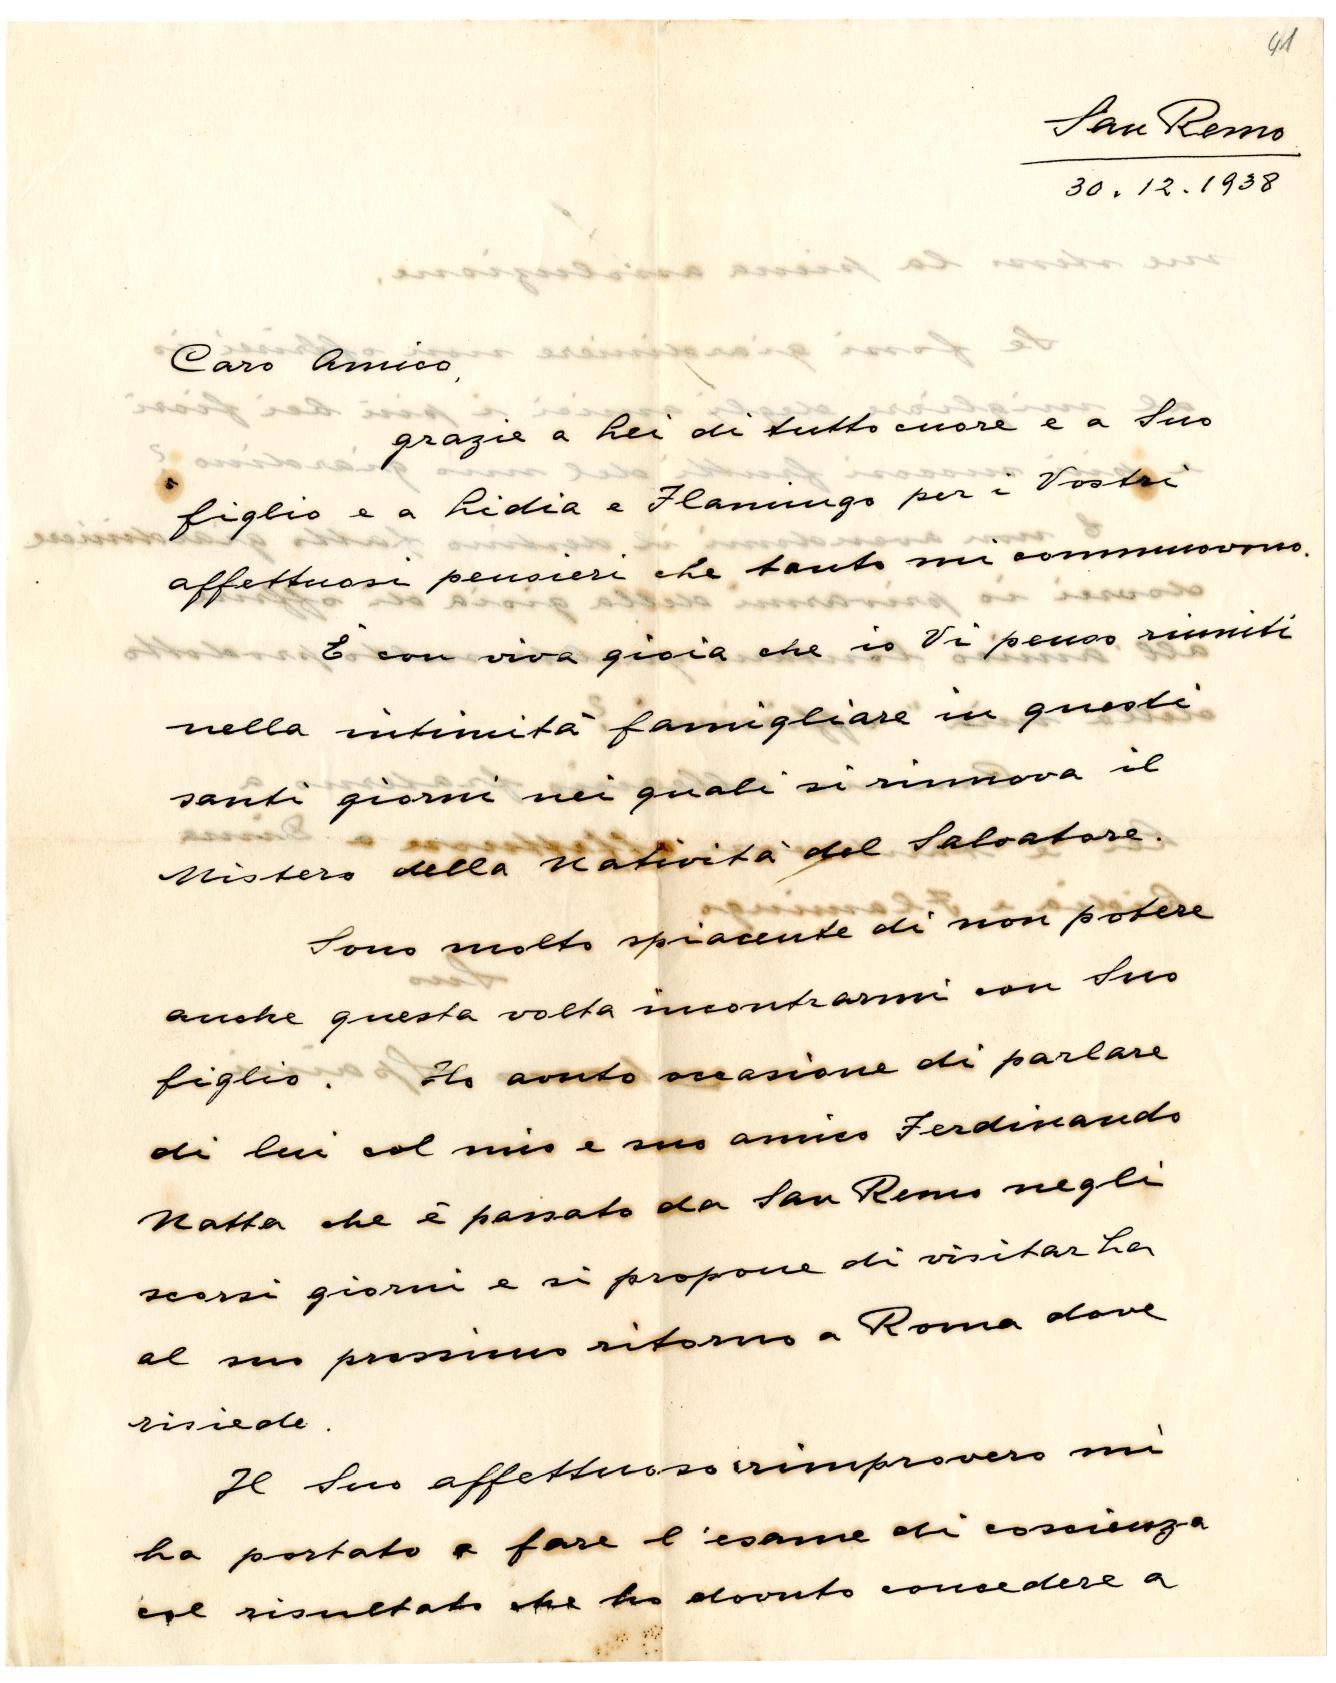 41
San Remo
30.12.1938
Caro Amico,
grazie a Lei di tutto cuore e a Suo
figlio e a Lidia e Flamingo per i Vostri
affettuosi pensieri che tanto mi commuovono.
È con viva gioia che io Vi penso riuniti
nella intimità famigliare in questi
santi giorni nei quali si rinnova il
Mistero della Natività del Salvatore.
Sono molto spiacente di non potere
anche questa volta incontrarmi con Suo
figlio. Ho avuto occasione di parlare
di lui col mio e suo amico Ferdinando
Natta che è passato da San Remo negli
scorsi giorni e si propone di visitar La
al suo prossimo ritorno a Roma dove
risiede.
Il Suo affettuoso rimprovero mi
ha portato a fare l'esame di coscienza
col risultato che ho dovuto concedere a